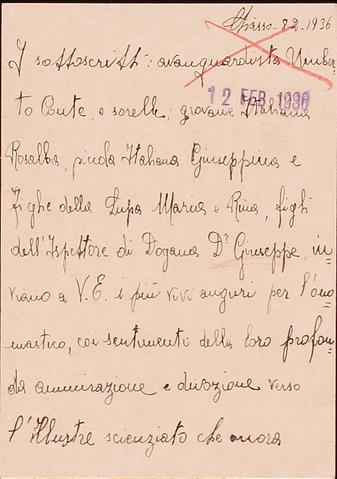 Chiasso - 8.2.1936
I sottoscritti: avanguardista Umber=
12 FEB 1936
to Conte, e sorelle; giovane Italiana
Rosalba, piccola Italiana Giuseppina e
Fighe della Lupa Maria e Rina, figli
dell'Ispettore di Dogana Dr Giuseppe, in=
viano a V. E. i più vivi auguri per l'ono=
mastico, coi sentimenti della loro profon=
da ammirazione e divozione verso
l'Illustre scienziato che onora